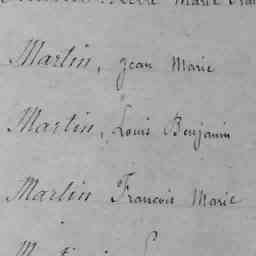 Marie
Martin, Jean Marie
Martin, Louis Benjamin
Martin François Marie